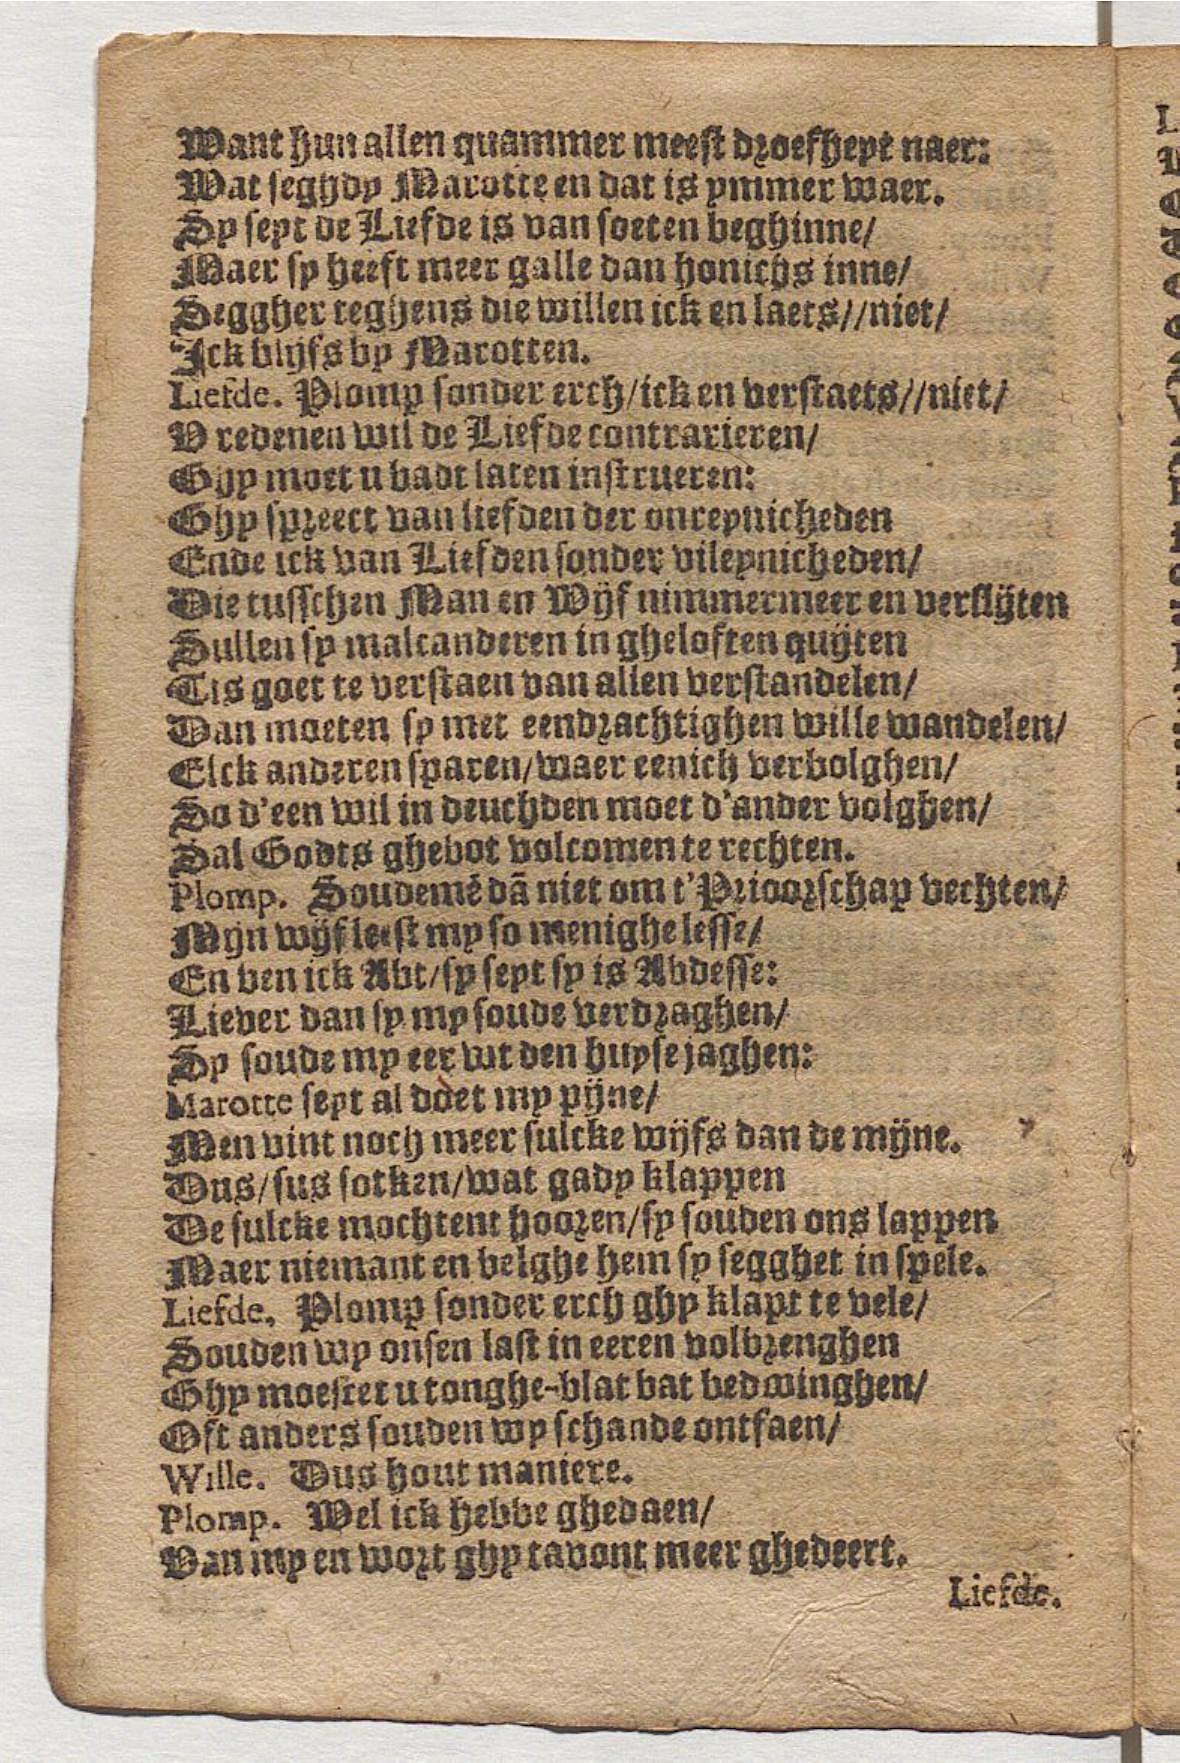 Want hun allen quammer meest droefheyt naer:
Wat seghdy Marotte en dat is ymmer waer.
Sy seyt de Liefde is van soeten beghinne/
Maer sy heeft meer galle dan honichs inne/
Seggher teghens die willen ick en laets//niet/
Ick blijfs by Marotten.
Liefde. Plomp sonder erch/ick en verstaets//niet/
V redenen wil de Liefde contrarieren/
Ghy moet u badt laten instrueren:
Ghy spreect van liefden der onreynicheden
Ende ick van Liefden sonder vileynicheden/
Die tusschen Man en Wijf nimmermeer en verslijten
Sullen sy malcanderen in gheloften quijten
Tis goet te verstaen van allen verstandelen/
Dan moeten sy met eendrachtighen wille wandelen/
Elck anderen sparen/waer eenich verbolghen/
So d'een wil in deuchden moet d'ander volghen/
Sal Godts ghebot volcomen te rechten.
Plomp. Soudemē dā niet om t'Prioorschap vechten/
Mijn wijf leest my so menighe lesse/
En ben ick Abt/sy seyt sy is Abdesse:
Liever dan sy my soude verdraghen/
Sy soude my eer wt den huyse jaghen:
Marotte seyt al doet my pijne/
Men vint noch meer sulcke wijfs dan de mijne.
Dus/sus sotken/wat gady klappen
De sulcke mochtent hooren/sy souden ons lappen
Maer niemant en belghe hem sy segghet in spele.
Liefde. Plomp sonder erch ghy klapt te vele/
Souden wy onsen last in eeren volbrenghen
Ghy moestet u tonghe-blat bat bedwinghen/
Oft anders souden wy schande ontfaen/
Wille. Dus hout maniere.
Plomp. Wel ick hebbe ghedaen/
Van my en wort ghy tavont meer ghedeert.
Liefde.